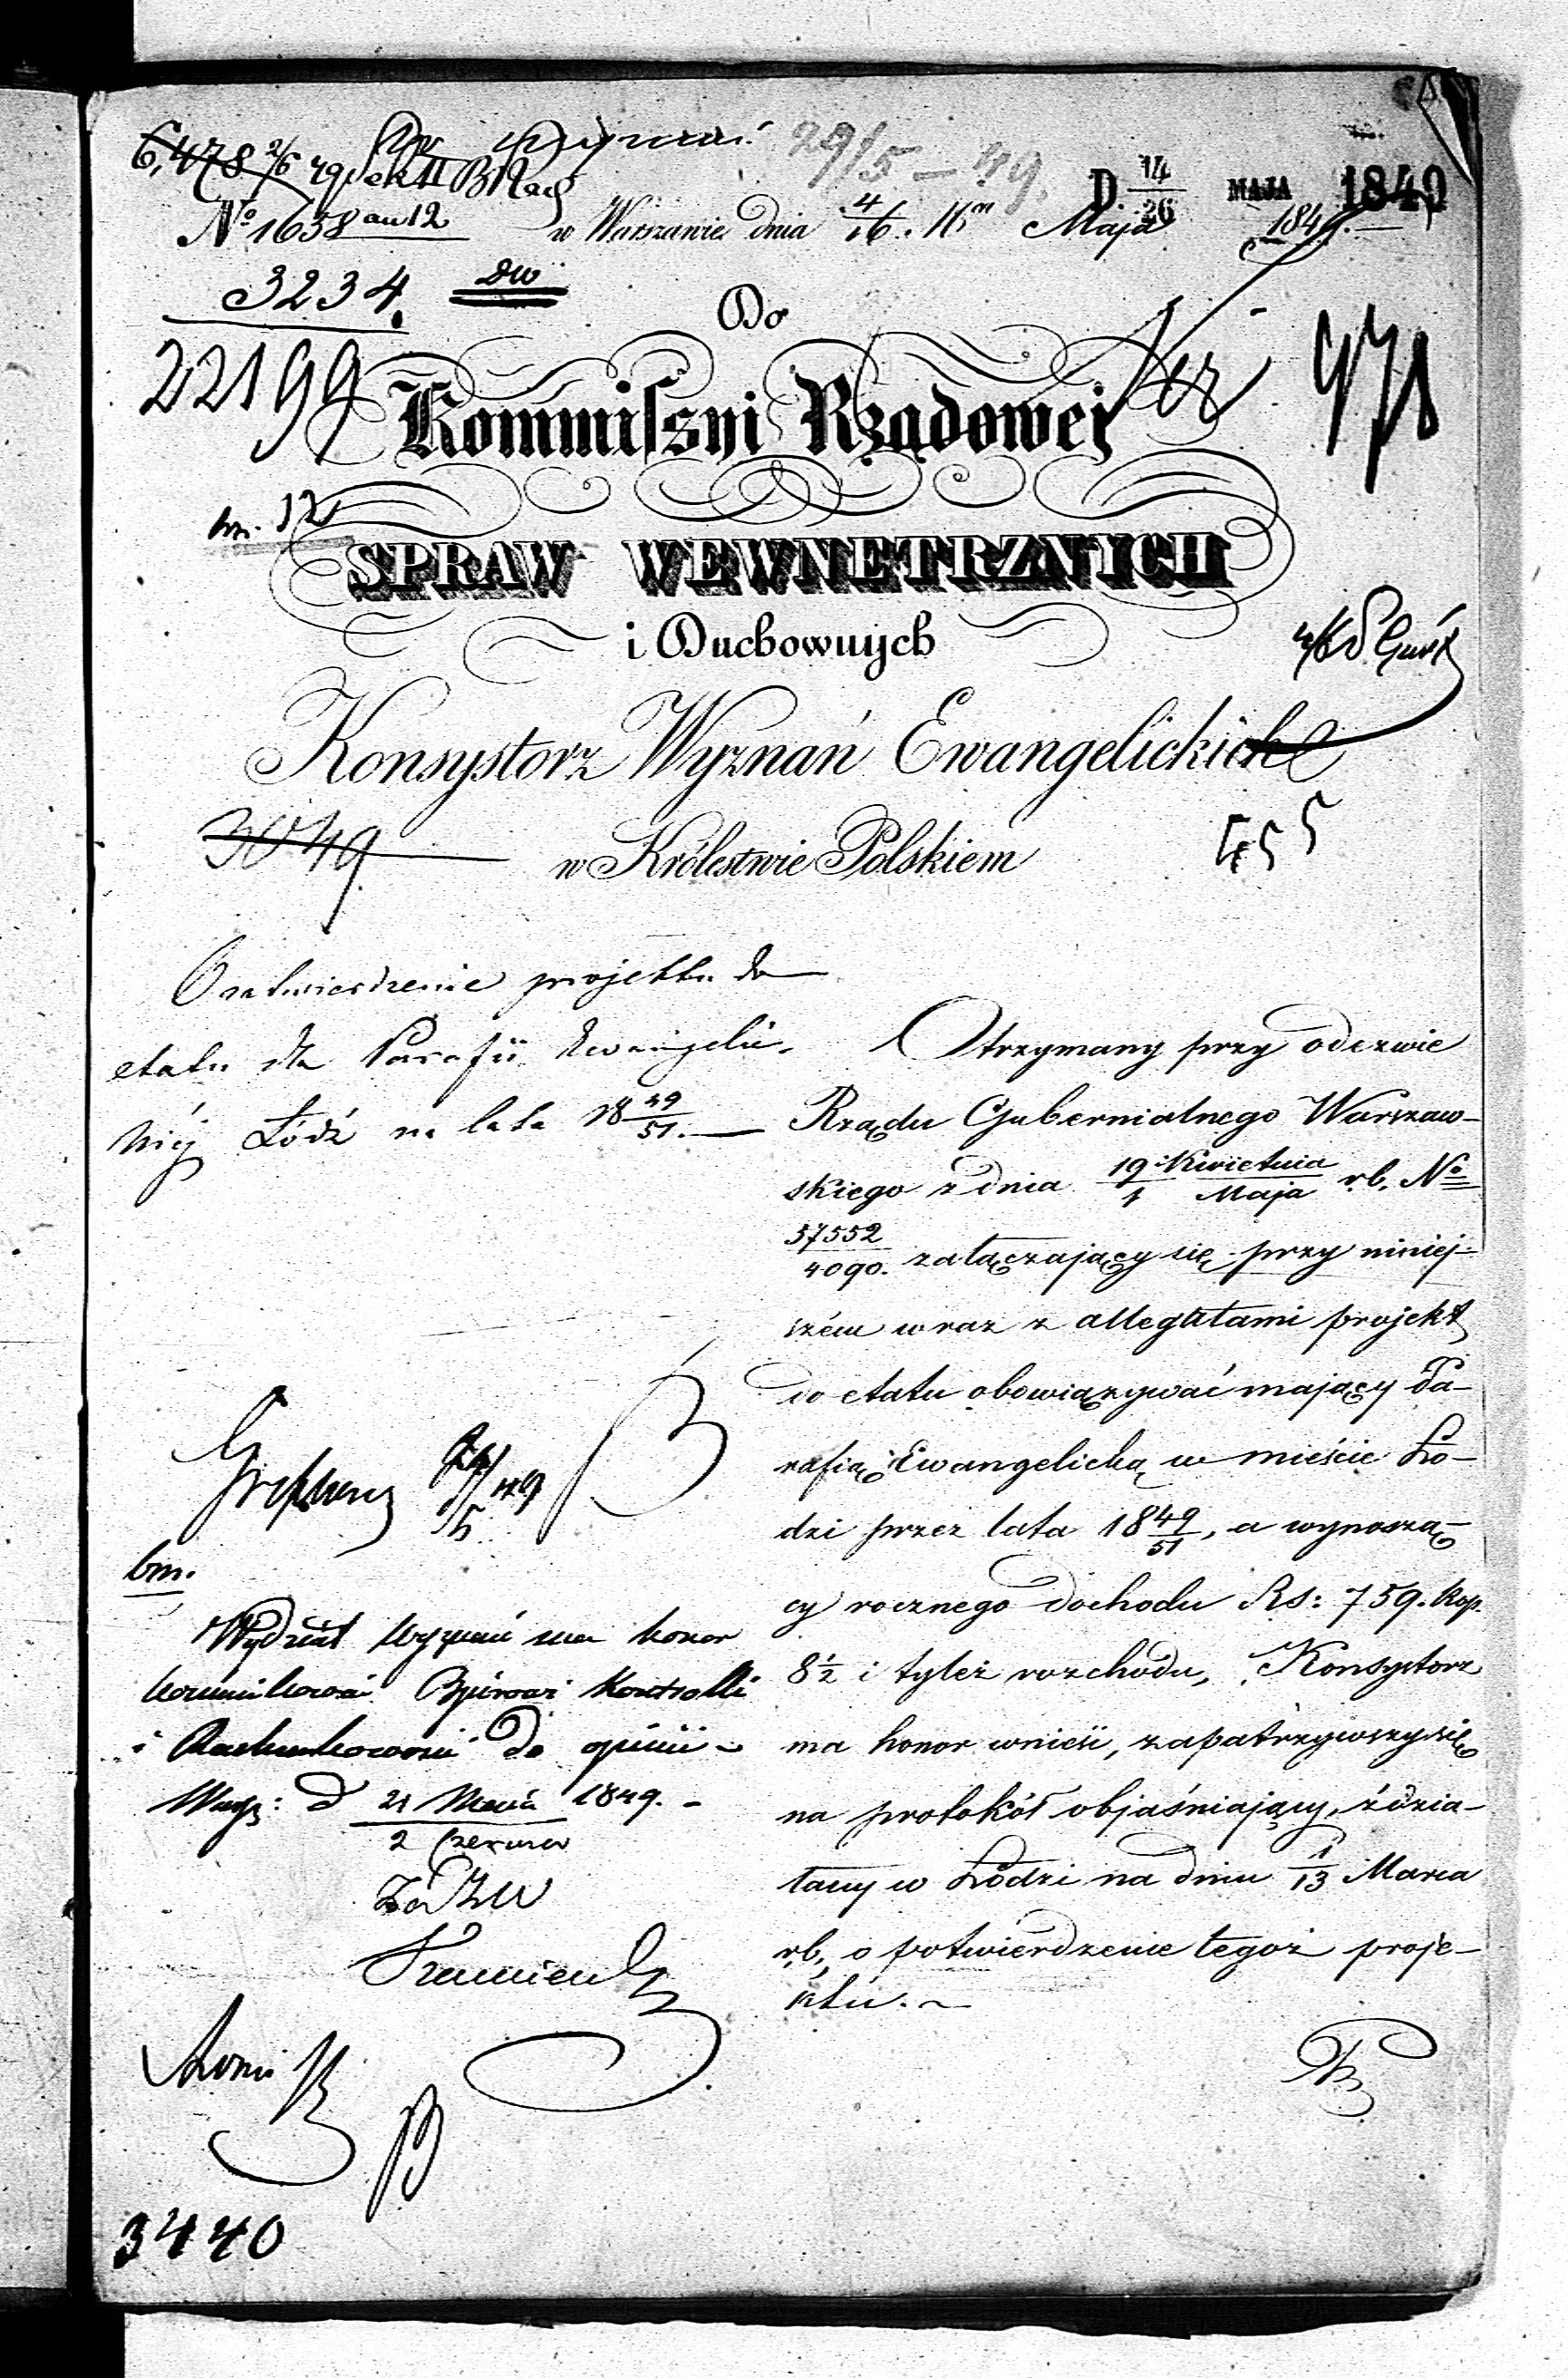 6,478 2/6 49
29/5 – 49.
D 14/26 MAJA 1849
No 1658 w Warszawie dnia 4/16. Maja 1849.
3234.
22199
Do
Kommissyi Rządowej
478
SPRAW WEWNETRZNYCH
i Duchownych
Konsystorz Wyznań Ewangelickich
3049
w Królestwie Polskiem
O zatwierdzenie projektu do
etatu dla Parafii Ewangelic-
kiéj Łódź na lata 18 49/51. —
Otrzymany przy odezwie
Rządu Gubernialnego Warszaw-
skiego z dnia 19 Kwietnia/1 Maja r.b. No
57552/4090. załączający się przy niniej-
szém wraz z allegatami projekt
do etatu obowiązywać mający Pa-
rafią Ewangelicką w mieście Ło-
dzi przez lata 18 49/51, a wynoszą-
cy rocznego dochodu Rs: 759. kop.
8½ i tyleż rozchodu, Konsystorz
ma honor wnieść, zapatrzywszy się
na protokół objaśniający, zdzia-
łany w Łodzi na dniu 1/13 Marca
r.b., o potwierdzenie tegoż proje-
ktu. –
bm.
Wydział Wyznań ma honor
kommunikować Biurowi Kontrolli
i Rachunkowości do opinii –
Warsz: d 21 Maja/2 Czerwca 1849. –
3440